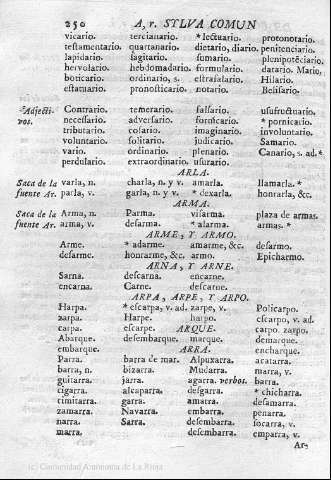 250 A, r. SYLVA COMUN
vicario. tercianario. * lectuario. protonotario.
testamentario. quartanario. dietario, diario. penitenciario.
lapidario. sagitario. sumario. plenipotẽciario.
hervolario. hebdomadario. formulario. datario. Mario,
boticario. ordinario, s. estrafalario. Hilario.
estatuario. pronosticario. notario. Belisario.
Adjecti- Contrario. temerario. falsario. usufructuario.
vos. necessario. adversario. fornicario. * pornicario.
tributario. cosario. imaginario. involuntario.
voluntario. solitario. judicario. Samario.
vario. ordinario. plenario. Canario, s. ad.*
perdulario. extraordinario. usurario.
ARLA.
Saca de la varla, n. charla, n. y v. amarla. llamarla. *
fuente Ar. parla, v. garla, n. y v. * dexarla. honrarla, &c.
ARMA.
Saca de la Arma, n. Parma. visarma. plaza de armas.
fuente Ar. arma, v. desarma. * alarma. armas. *
ARME, Y ARMO.
Arme. * adarme. amarme, &c. desarmo.
desarme. honrarme, &c. armo. Epicharmo.
ARNA, Y ARNE.
Sarna. descarna. encarne.
encarna. Carne. descarne.
ARPA, ARPE, Y ARPO.
Harpa. * escarpa, v. ad. zarpe, v. Policarpo.
zarpa. Harpe. harpo. escarpo, v. ad.
carpa. escarpe. ARQUE. carpo. zarpo.
Abarque. desembarque. marque. demarque.
embarque. ARRA. encharque.
Parra. barra de mar. Alpuxarra. acatarra.
barra, n. bizarra. Mudarra. marra, v.
guitarra. jarra. agarra. verbos. barra.
cigarra. alcaparra. desgarra. * chicharra.
cimitarra. garra. amarra. desamarra.
zamarra. Navarra. embarra. penarra.
narra. Sarra. desembarra. socarra, v.
marra. desembarra. emparra, v.
Ar-
(c) Comunidad Autónoma de La Rioja